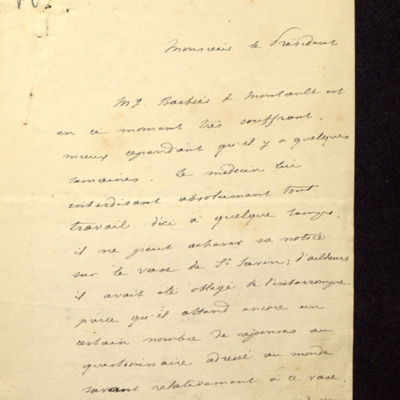 Monsieur le Président
Mgr Barbier de Montault est
en ce moment très souffrant,
mieux cependant qu'il y a quelques
semaines. Le médecin lui
interdisant absolument tout
travail d'ici à quelque temps,
il ne peut achever sa notice
sur le vase de St Savin; d'ailleurs
il avait été obligé de l'interrompre
parce qu'il attend encore un
certain nombre de réponses au
questionnaire adressé au monde
savant relativement à ce vase.